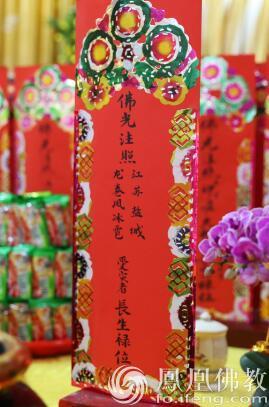 佛光注照
江苏 盐城
龙卷风冰雹
受灾者 長生禄位
佛光注照
鳳凰佛教
fo.ifeng.com